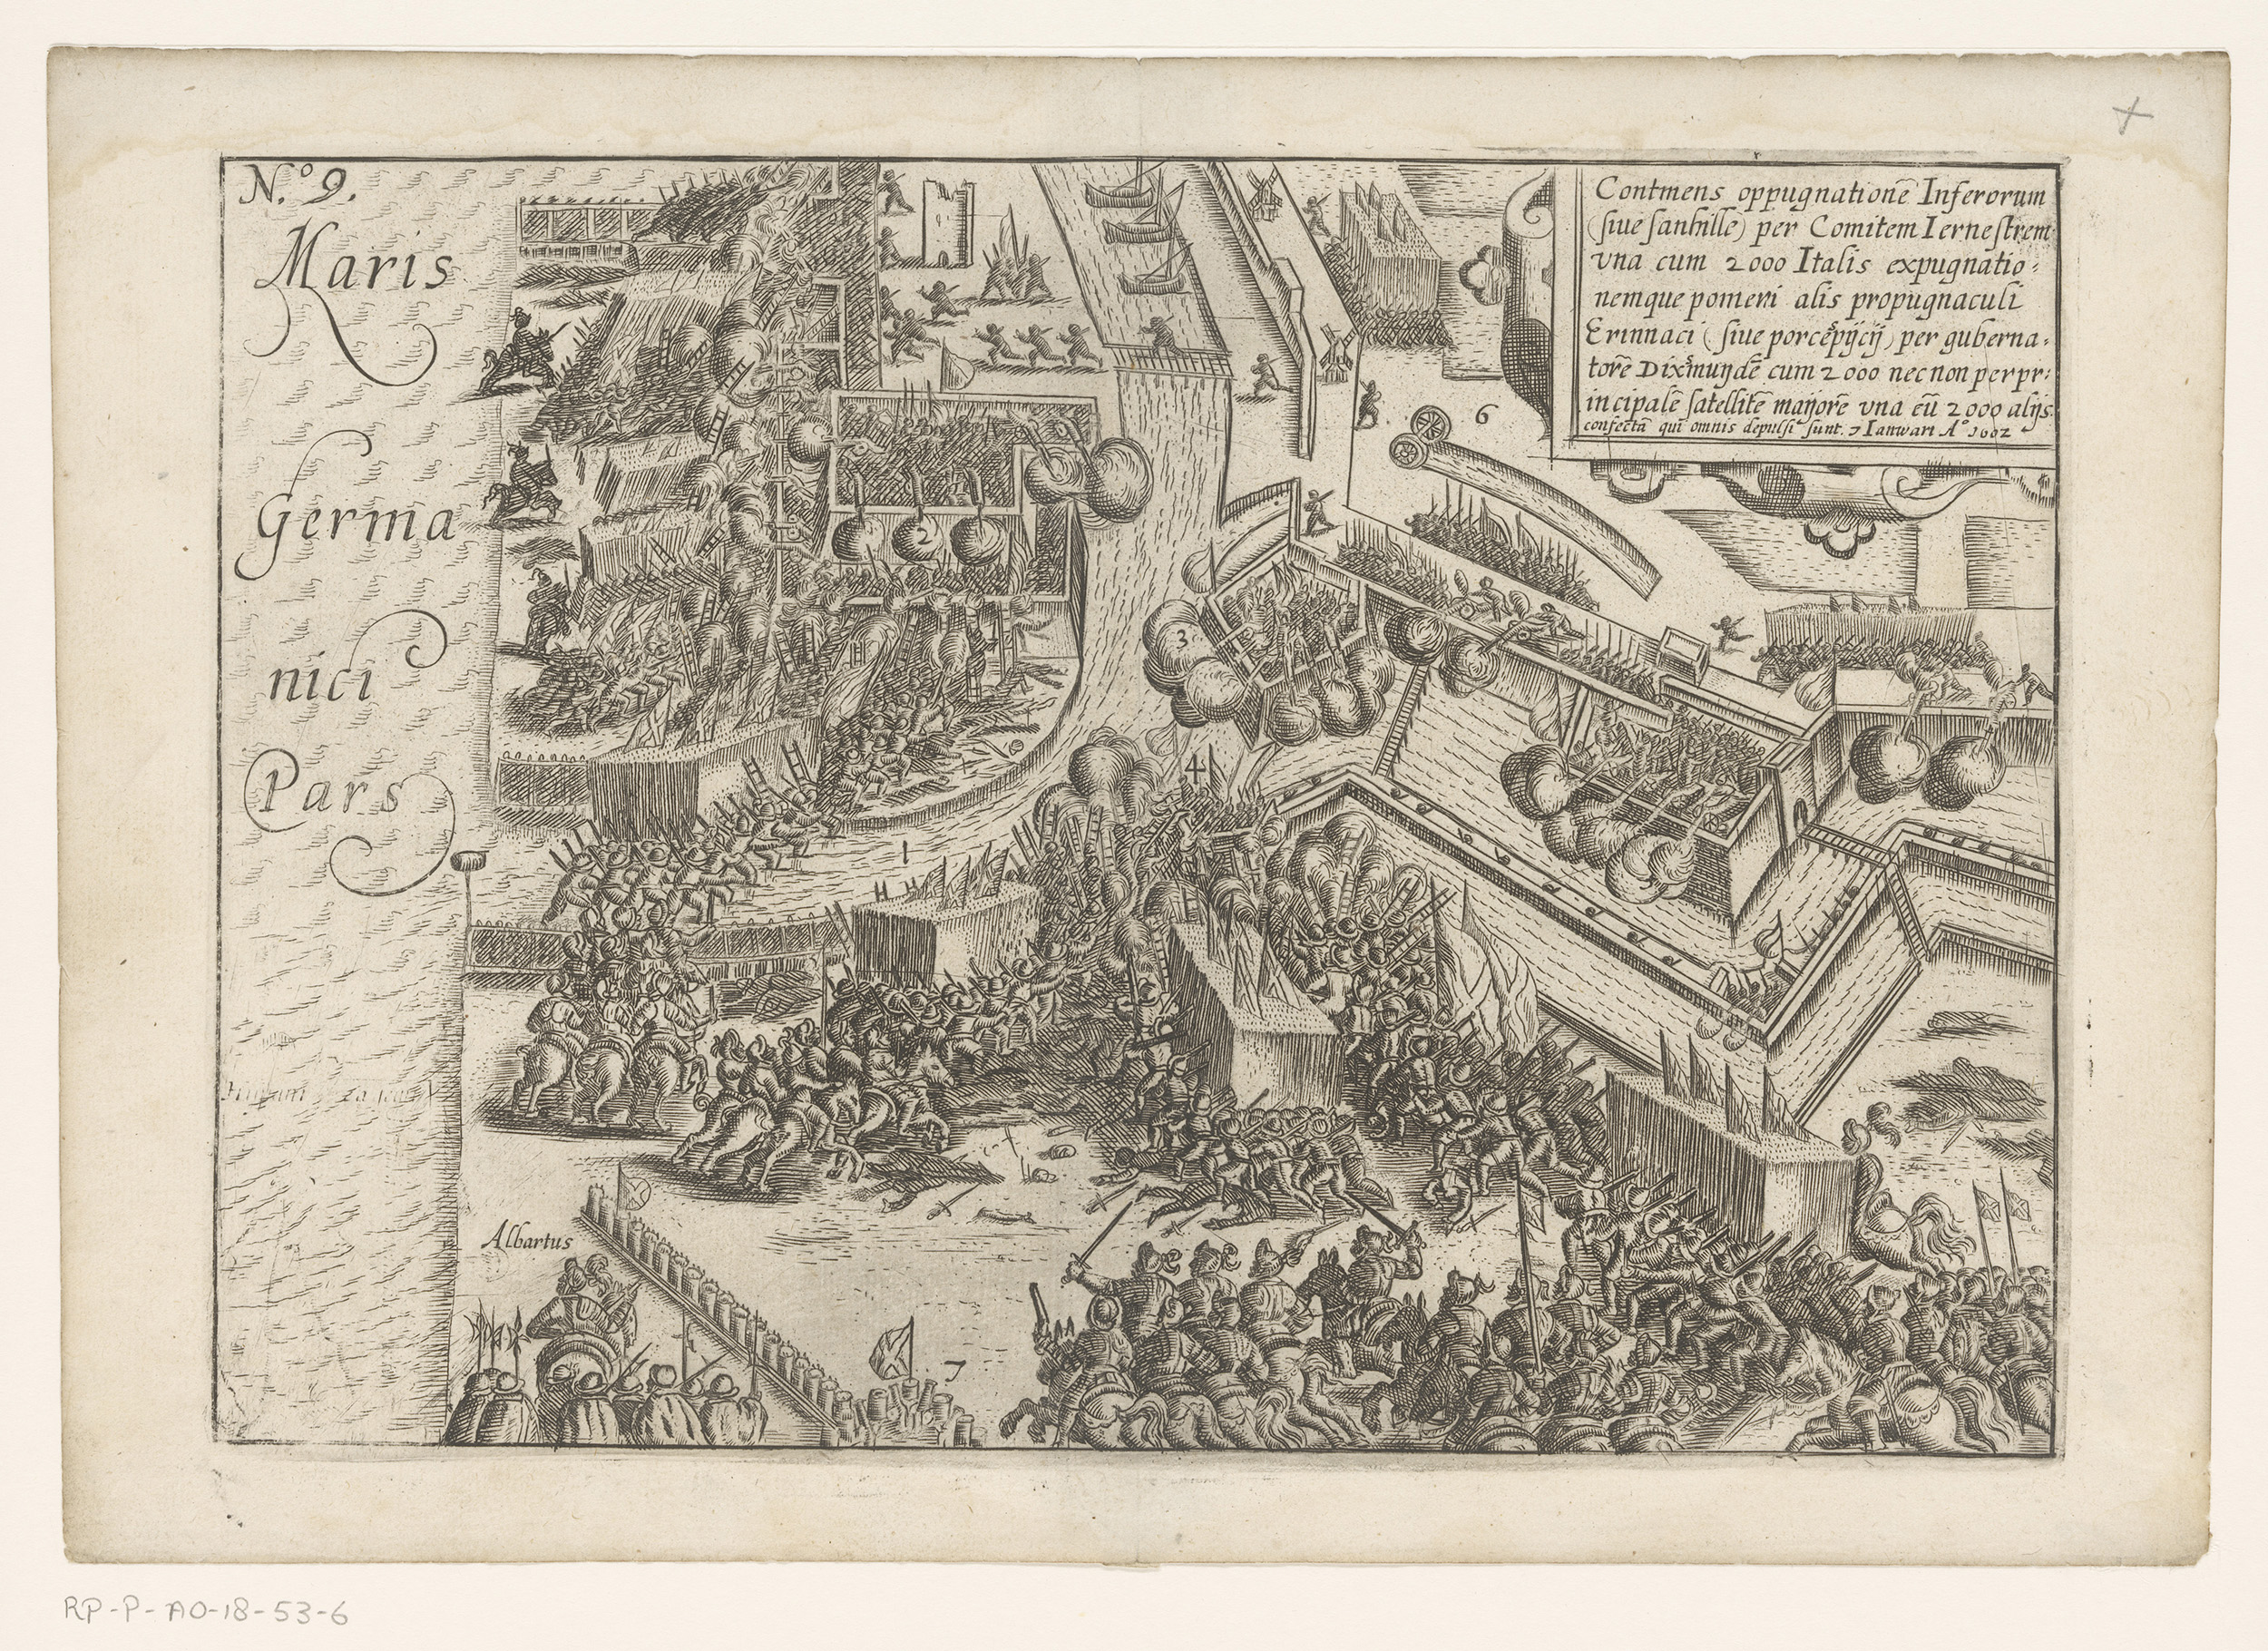 N.º 9.
Maris
Germa
nici
Pars
Contmens oppugnationē Inferorum
(siue sanhille) per Comitem Iernestrem
vna cum 2000 Italis expugnatio:
nemque pomeri alis propugnaculi
Erinnaci (siue porcespijcij) per guberna:
torē Dixmuydē cum 2000 nec non per pr:
incipalē satellitē mayorē vna cū 2000 alijs
confectā qui omnis depulsi sunt. 7 Ianwari Aº 1602
6
2
3
4
1
Albartus
7
RP-P-AO-18-53-6